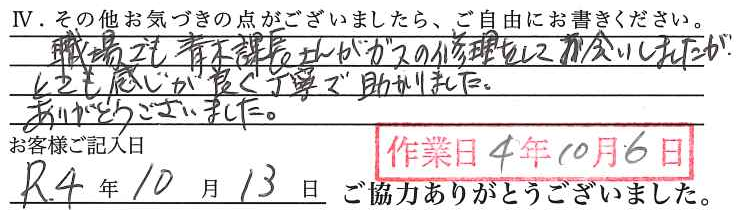 Ⅳ．その他お気づきの点がございましたら、ご自由にお書きください。
職場でも青木課長さんがガスの修理をしてお会いしましたが
とても感じが良く丁寧で助かりました。
ありがとうございました。
お客様ご記入日
作業日 4年10月6日
R.4 年 10 月 13 日 ご協力ありがとうございました。